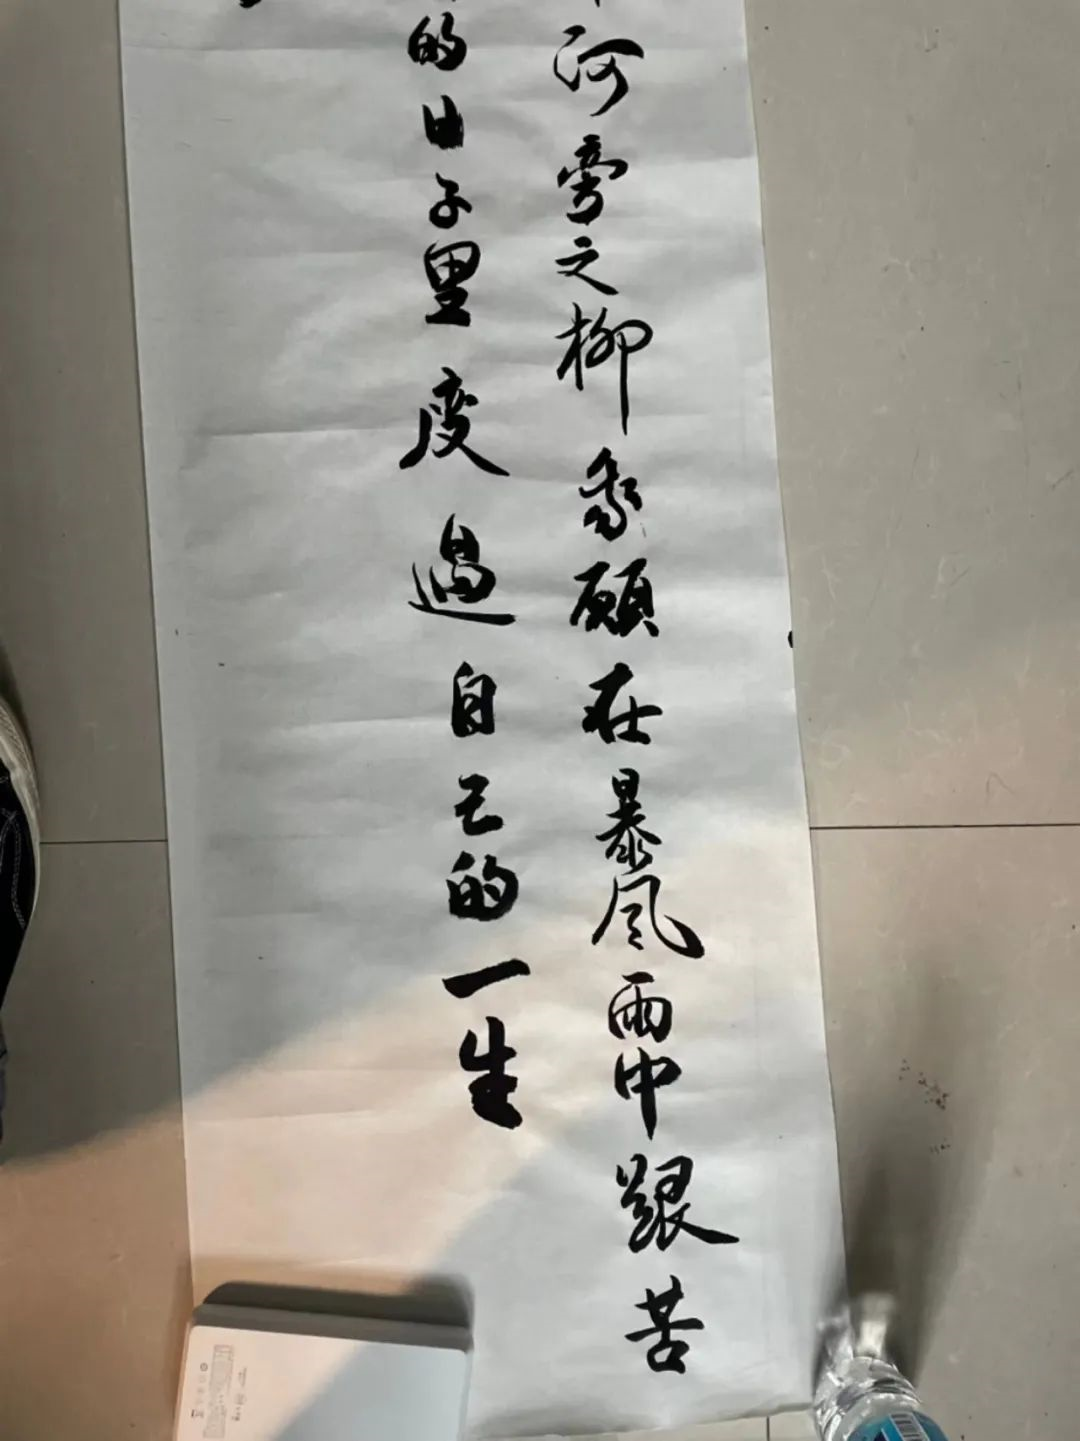 河旁之柳我願在暴风雨中艰苦
的日子里度過自己的一生